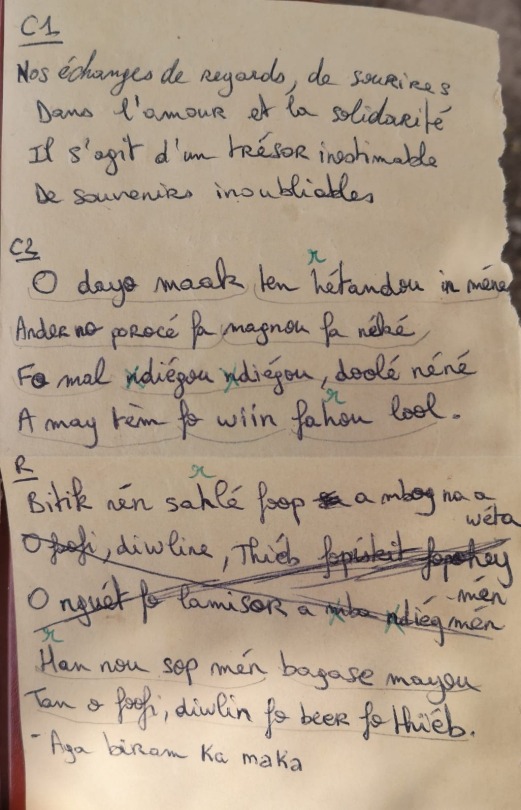 C1
Nos échanges de regards, de sourires
Dans l'amour et la solidarité
Il s'agit d'un trésor inestimable
De souvenirs inoubliables
C2
r
O dayo maak ten hétandou in méne
Ander no porocé fa magnou fa néké,
Fo mal ndiégou ndiégou, doolé néné
r
A may tèm fo wiin fahou lool.
R
r
Bitik nén sahlé foop a mbog na a
wéta
O fofi, diwline, Thiéb fopiskit
O nguét fo lamisor a ndiég mén
- mén
r
Han nou sop mén bagase mayou
Tan o foofi, diwlin fo beer fo thiéb.
- Aga biram Ka maka